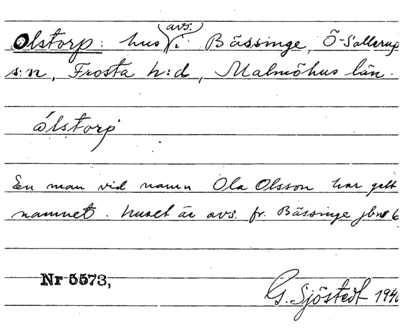 Olstorp: hus avs. i Bässinge, Ö-Sallerup
s:n, Frosta h:d, Malmöhus län.
ólstorp
En man vid namn Ola Olsson har gett
namnet. huset är avs. fr. Bässinge jbnr 6
Nr 5573,
G. Sjöstedt 1940